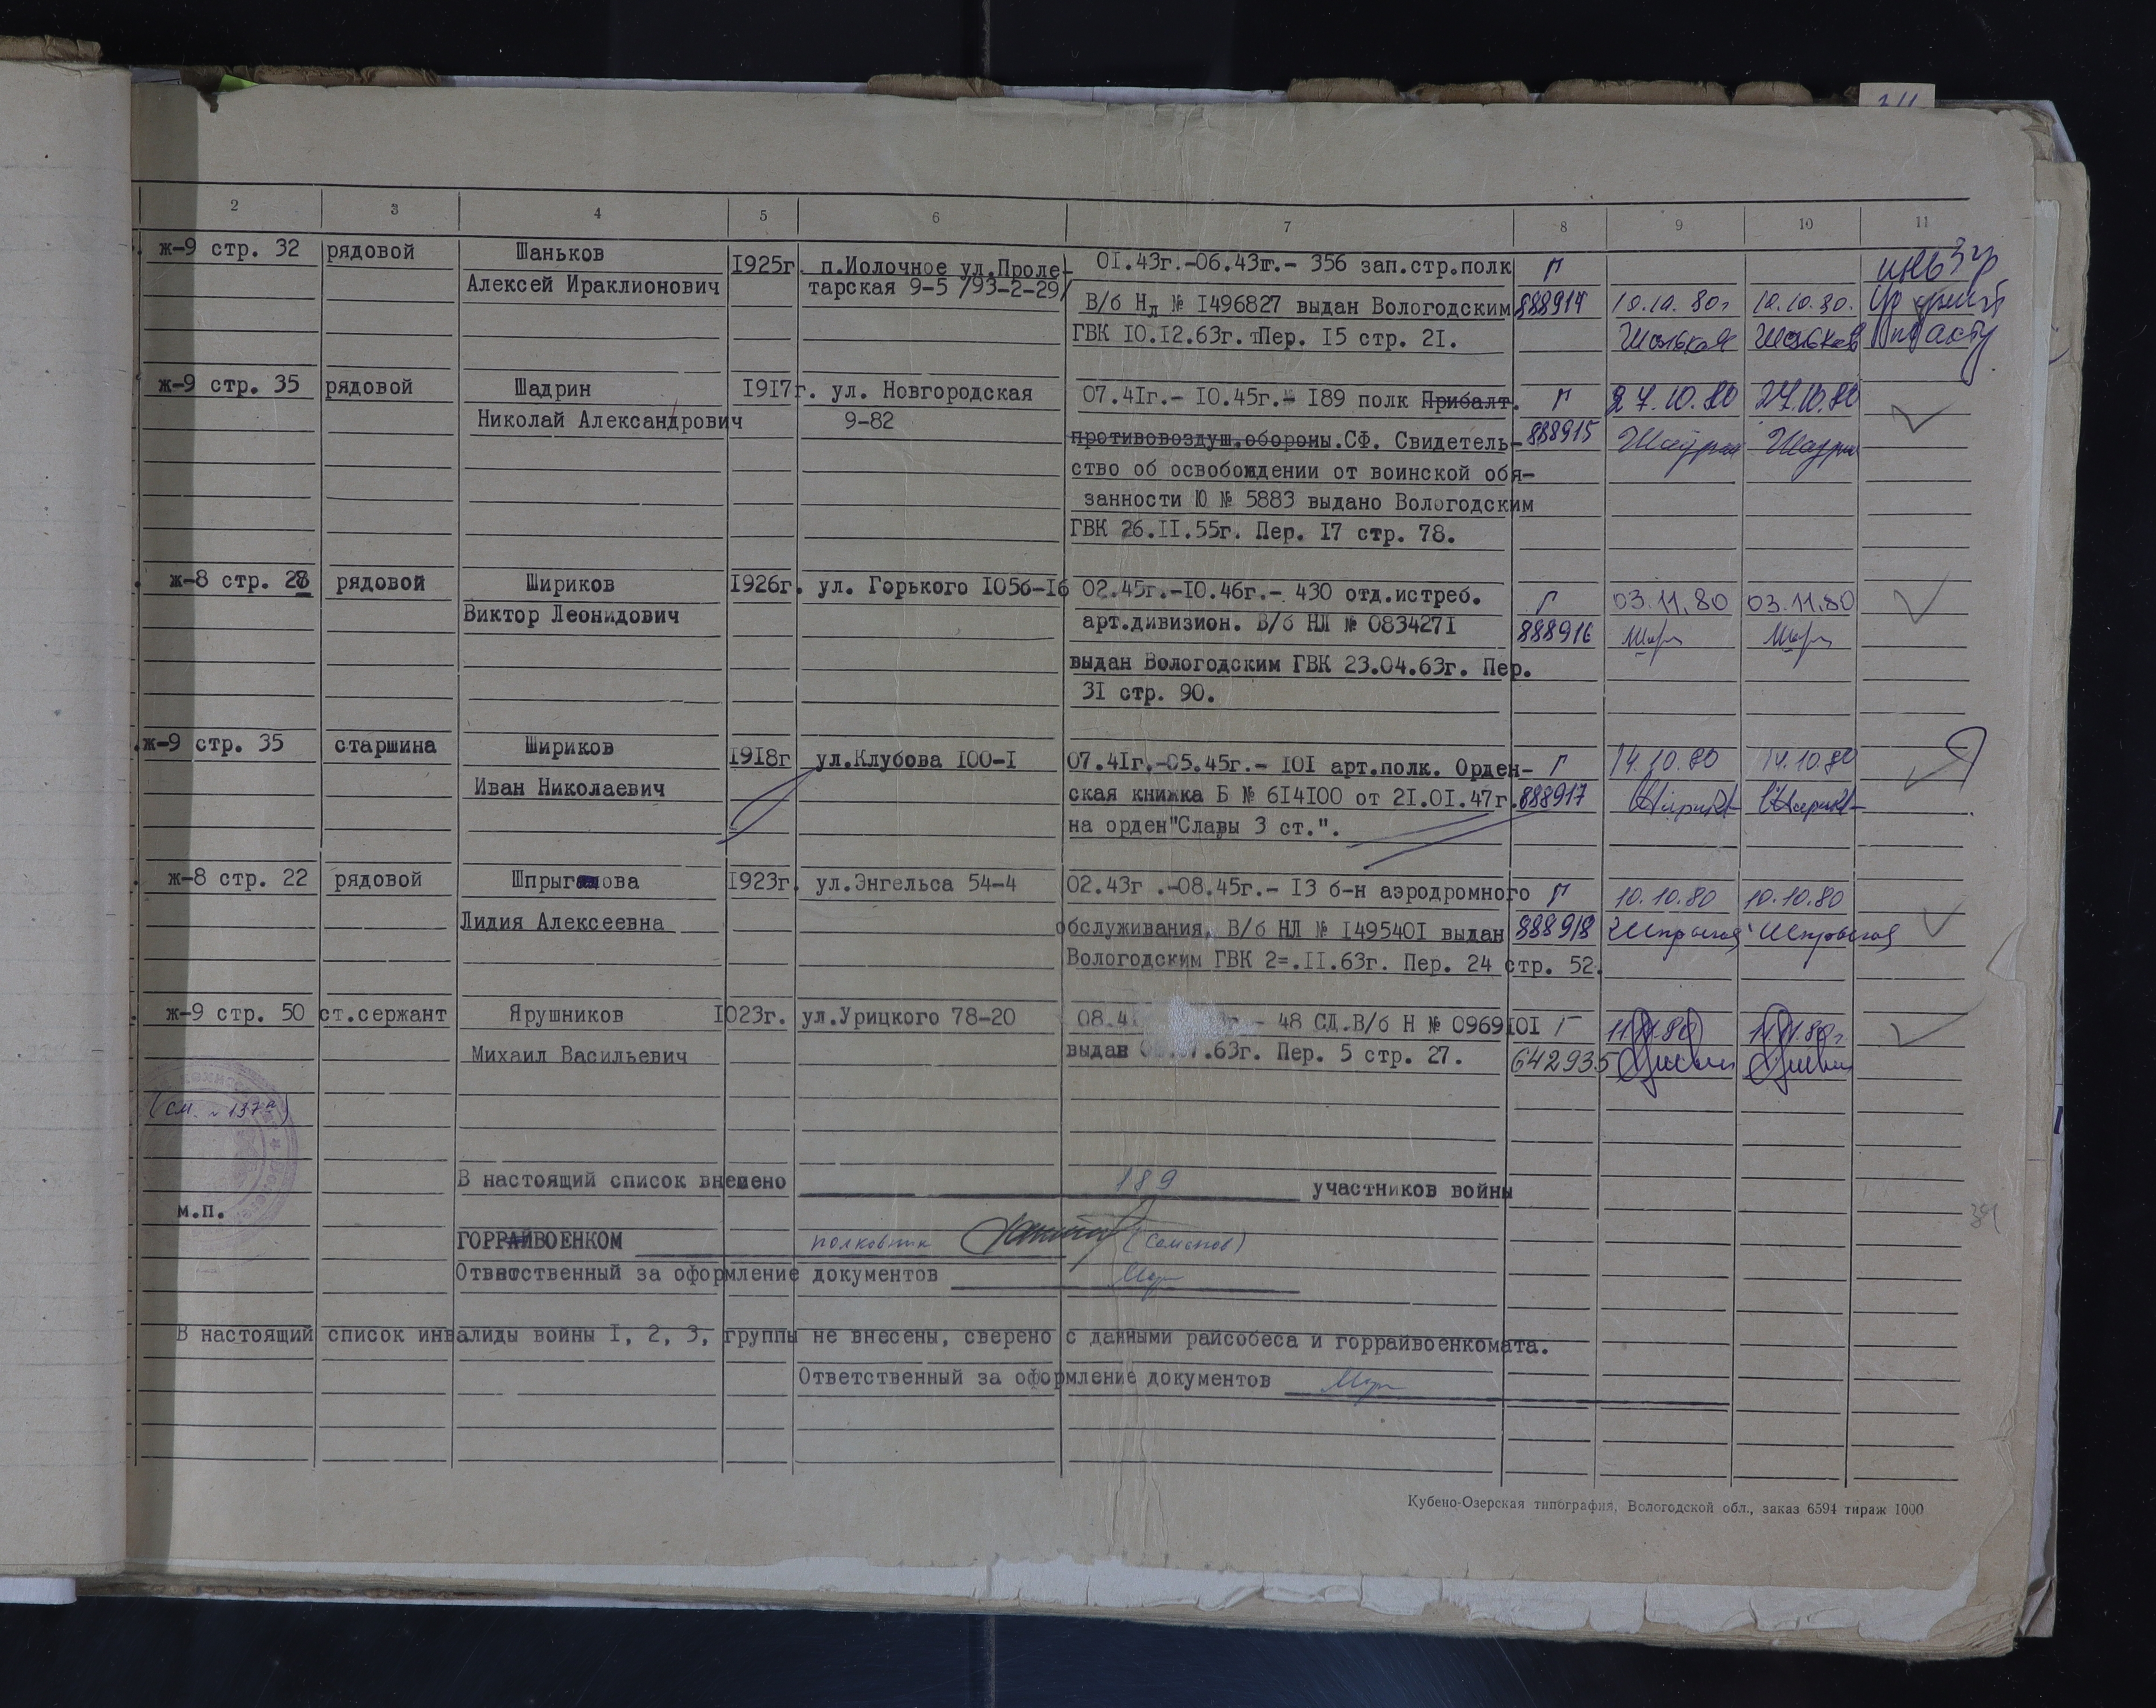 2 3 4 5 6 7 8 9 10 11
ж-9 стр. 32 рядовой Шаньков 1925г. п.Молочное ул.Проле- 01.43г.-06.43г.- 356 зап.стр.полк Г
Алексей Ираклионович тарская 9-5 /93-2-29/
В/б Нл № 1496827 выдан Вологодским 888914 10.10.80г 10.10.80.
ГВК 10.12.63г. Пер. 15 стр. 21.
ж-9 стр. 35 рядовой Шадрин 1917г. ул. Новгородская 07.41г.- 10.45г.- 189 полк Прибалт. Г 27.10.80 27.10.80
Николай Александрович 9-82
противовоздуш.обороны.СФ. Свидетель- 888915
ство об освобождении от воинской обя-
занности Ю № 5883 выдано Вологодским
ГВК 26.11.55г. Пер. 17 стр. 78.
ж-8 стр. 28 рядовой Шириков 1926г. ул. Горького 105б-16 02.45г.-10.46г.- 430 отд.истреб. Г 03.11.80 03.11.80
Виктор Леонидович арт.дивизион. В/б НЛ № 0834271 888916
выдан Вологодским ГВК 23.04.63г. Пер.
31 стр. 90.
ж-9 стр. 35 старшина Шириков 1918г ул.Клубова 100-1 07.41г.-05.45г.- 101 арт.полк. Орден- Г 14.10.80 14.10.80
Иван Николаевич ская книжка Б № 614100 от 21.01.47г. 888917
на орден"Славы 3 ст.".
ж-8 стр. 22 рядовой 1923г. ул.Энгельса 54-4 02.43г .-08.45г.- 13 б-н аэродромного Г 10.10.80 10.10.80
Лидия Алексеевна обслуживания. В/б НЛ № 1495401 выдан 888918
Вологодским ГВК 2=.11.63г. Пер. 24 стр. 52.
ж-9 стр. 50 ст.сержант Ярушников 1023г. ул.Урицкого 78-20 - 48 СД.В/б Н № 0969101 Г
Михаил Васильевич выдан .63г. Пер. 5 стр. 27. 642935
В настоящий список внесено 189 участников войны
м.п.
ГОРРАЙВОЕНКОМ полковник
Ответственный за оформление документов
В настоящий список инвалиды войны 1, 2, 3, группы не внесены, сверено с данными райсобеса и горрайвоенкомата.
Ответственный за оформление документов
Кубено-Озерская типография, Вологодской обл., заказ 6594 тираж 1000